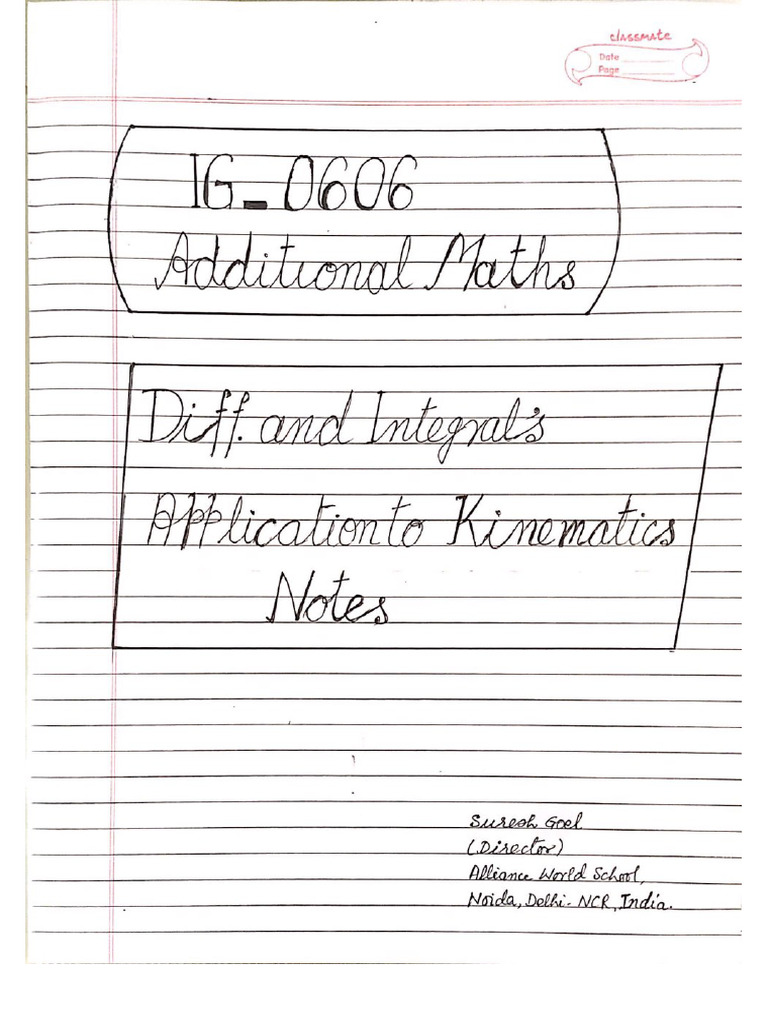 classmate
Date
Page
IG-0606
Additional Maths
Diff. and Integral's
Application to Kinematics
Notes
Suresh Goel
(Director)
Alliance World School,
Noida, Delhi-NCR, India.